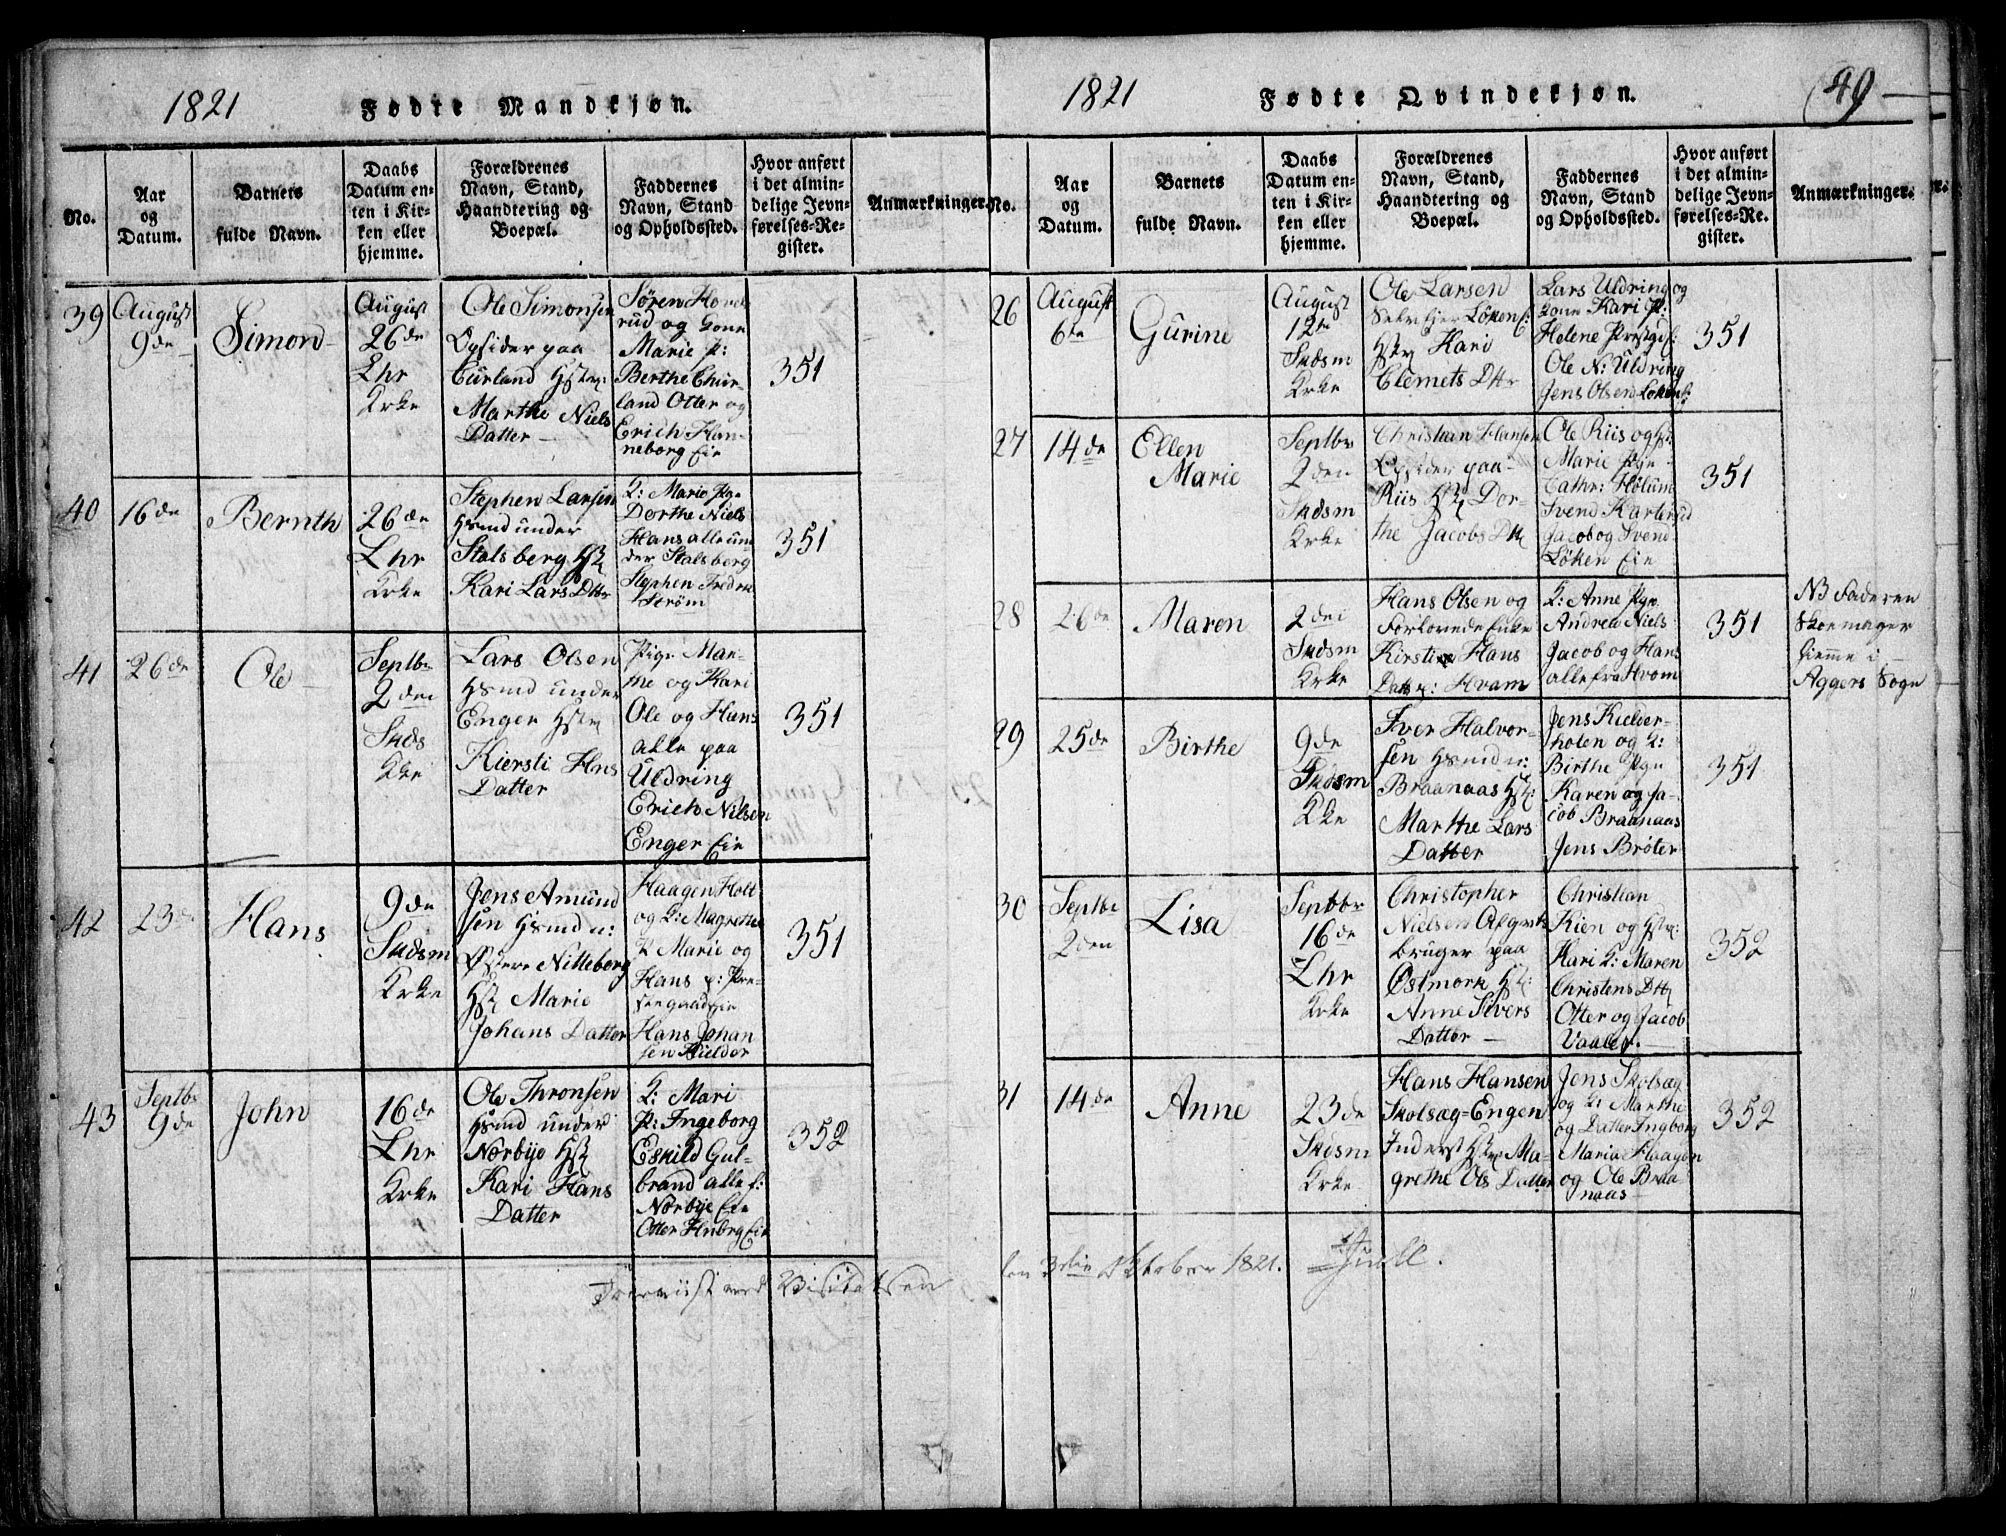 1821 Fødte Mandkjøn.
No.
Aar
og
Datum.
Barnets
fulde Navn.
Daabs
Datum en-
ten i Kir-
ken eller
hjemme.
Forældrenes
Navn, Stand,
Haandtering og
Boepæl.
Faddernes
Navn, Stand
og Opholdssted.
Hvor anført
i det almin-
delige Jevn-
førelses-Re-
gister.
Anmærkninger.
39
August
9de
Simon
August
26de
Lhr
Krke
Ole Simonsen
Opsider paa
Curland Hstr:
Marthe Niels
Datter
Søren Hovel
rud og Kone
Marie P:
Berthe Chur-
land Otter og
Erich Han-
neborg Eie
351
40
16de
Bernth
26de
Lhr
Krke
Stephen Larsen
Hsmd under
Stalsberg Hst
Kari Lars Dttr
K: Marie Pge
Dorthe Niels
Hans alle un
der Stalsberg
Stephen Fredens
Strøm
351
41
26de
Ole
Septbr
2den
Skds
Kke
Lars Olsen
Hsmd under
Enger Hstr
Kiersti Hns
Datter
Pige Mar-
the og Kari
Ole og Hans
alle paa
Uldring
Erich Nilsen
Enger Eie
351
42
23de
Hans
9de
Skdsm
Krke
Jens Amund
sen Hsmd u:
Østere Nitteberg
Hst Marie
Johans Datter
Haagen Holt
og K: Magrethe
P Marie og
Hans p: Pre-
stegaards
Hans Johan
sen Kieldor
351
43
Septbr
9de
John
16de
Lhr
Krke
Ole Thronsen
Hsmd under
Nørbye Hst
Kari Hans
Datter
K: Mari
P: Ingeborg
Eskild Gul-
brand alle f:
Nørbye Eie
Otter Huberg Eie
352
ved Visitatsen
1821 Fødte Qvindekjøn. 49
No.
Aar
og
Datum.
Barnets
fulde Navn.
Daabs
Datum en-
ten i Kir-
ken eller
hjemme.
Forældrenes
Navn, Stand,
Haandtering og
Boepæl.
Faddernes
Navn, Stand
og Opholdssted.
Hvor anført
i det almin-
delige Jevn-
førelses-Re-
gister.
Anmærkninger.
26
August
6te
Gurine
August
12te
Skdsm
Krke
Ole Larsen
Selveier Løken
Hstr Kari
Clemets Dttr
Lars Uldring og
Kone Kari P:
Helene Prestgd:
Ole N: Uldring
Jens Olsen Løken
351
27
14de
Ellen
Marie
Septbr
2den
Skdsm
Krke
Christian Hansen
Opsider paa
Riis Hst Dor-
the Jacobs Dtt
Ole Riis og H:
Marie Pge
Cathr: Holum
Svend Karterud
Jacob og Svend
Løken Eie
351
28
26de
Maren
2den
Skdsm
Krke
Hans Olsen og
Forlovede Enke
Kirstine Hans
Datt p: Hvam
K: Anne Pge
Andrea Niels
Jacob og Hans
alle fra Hvam
351
NB Faderen
Skoemager
hieme i
Aggers Sogn
29
25de
Birthe
9de
Skdsm
Kke
Iver Halvor-
sen Hsmd u:
Braanaas Hst:
Marthe Lars
Datter
Jens Kielder-
holen og K:
Birthe Pge
Karen og Ja-
cob Braanaas
Jens Bröter
351
30
Septbr
2den
Lisa
Septbr
16de
Lhr
Krke
Christopher
Nielsen
bruger paa
Østmork Hst:
Anne Sivers
Datter
Christian
Kien og Hstr:
Kari K: Maren
Christens Dtt
Otter og Jacob
Vaaler
352
31
14de
Anne
23de
Skdsm
Krke
Hans Hansen
Skolsæg=Engen
Inderst Hstr Ma-
grethe Ols Datter
Jens Skolsæg
og K: Marthe
og Datter Ingborg
Maria Haagen
og Ole Braa
naas
352
den 3die Oktober 1821. Juell.